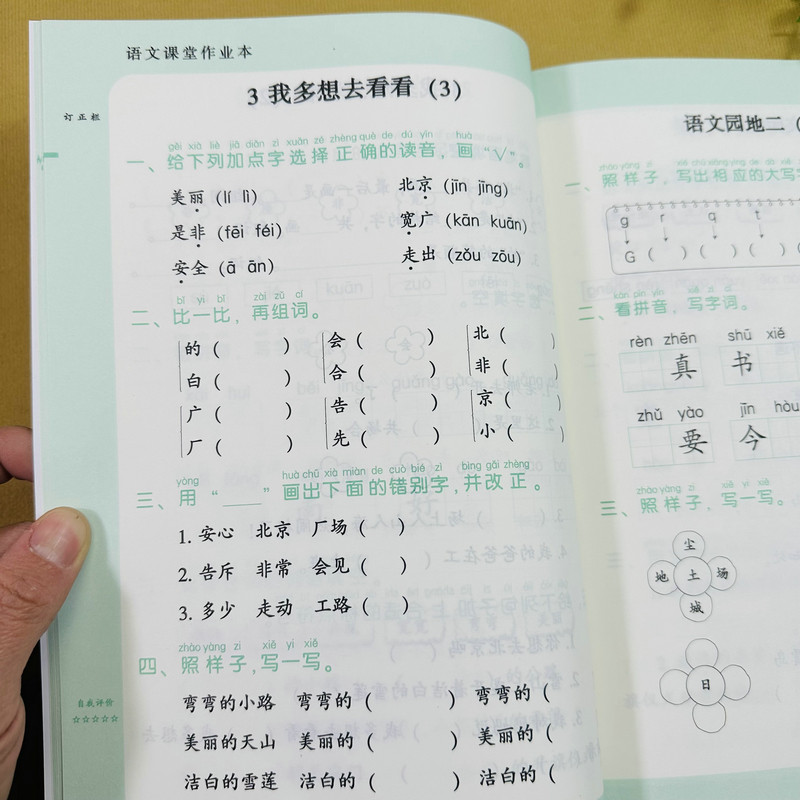 语文课堂作业本
订正栏
3 我多想去看看（3）
gěi xià liè jiā diǎn zì xuǎn zé zhèng què de dú yīn huà
一、给下列加点字选择正确的读音，画“√”。
美丽（lí lì） 北京（jīn jīng）
是非（fēi féi） 宽广（kān kuān）
安全（ā ān） 走出（zǒu zōu）
bǐ yi bǐ zài zǔ cí
二、比一比，再组词。
的（ ） 会（ ） 北（ ）
白（ ） 合（ ） 非（ ）
广（ ） 告（ ） 京（ ）
厂（ ） 先（ ） 小（ ）
yòng huà chū xià miàn de cuò bié zì bìng gǎi zhèng
三、用“____”画出下面的错别字，并改正。
1. 安心 北京 厂场（ ）
2. 告斥 非常 会见（ ）
3. 多少 走动 工路（ ）
zhào yàng zi xiě yi xiě
四、照样子，写一写。
弯弯的小路 弯弯的（ ） 弯弯的（
美丽的天山 美丽的（ ） 美丽的（
洁白的雪莲 洁白的（ ） 洁白的（
自我评价
☆☆☆☆☆
语文园地二（
zhào yàng zi
一、照样子，写出相应的大写字
g r q t
G（ ）（ ）（ ）（
kàn pīn yīn xiě zì cí
二、看拼音，写字词。
rèn zhēn shū xiě
真 书
zhǔ yào jīn hòu
要 今
zhào yàng zi xiě yi xiě
三、照样子，写一写。
尘
地 土 场
城
日